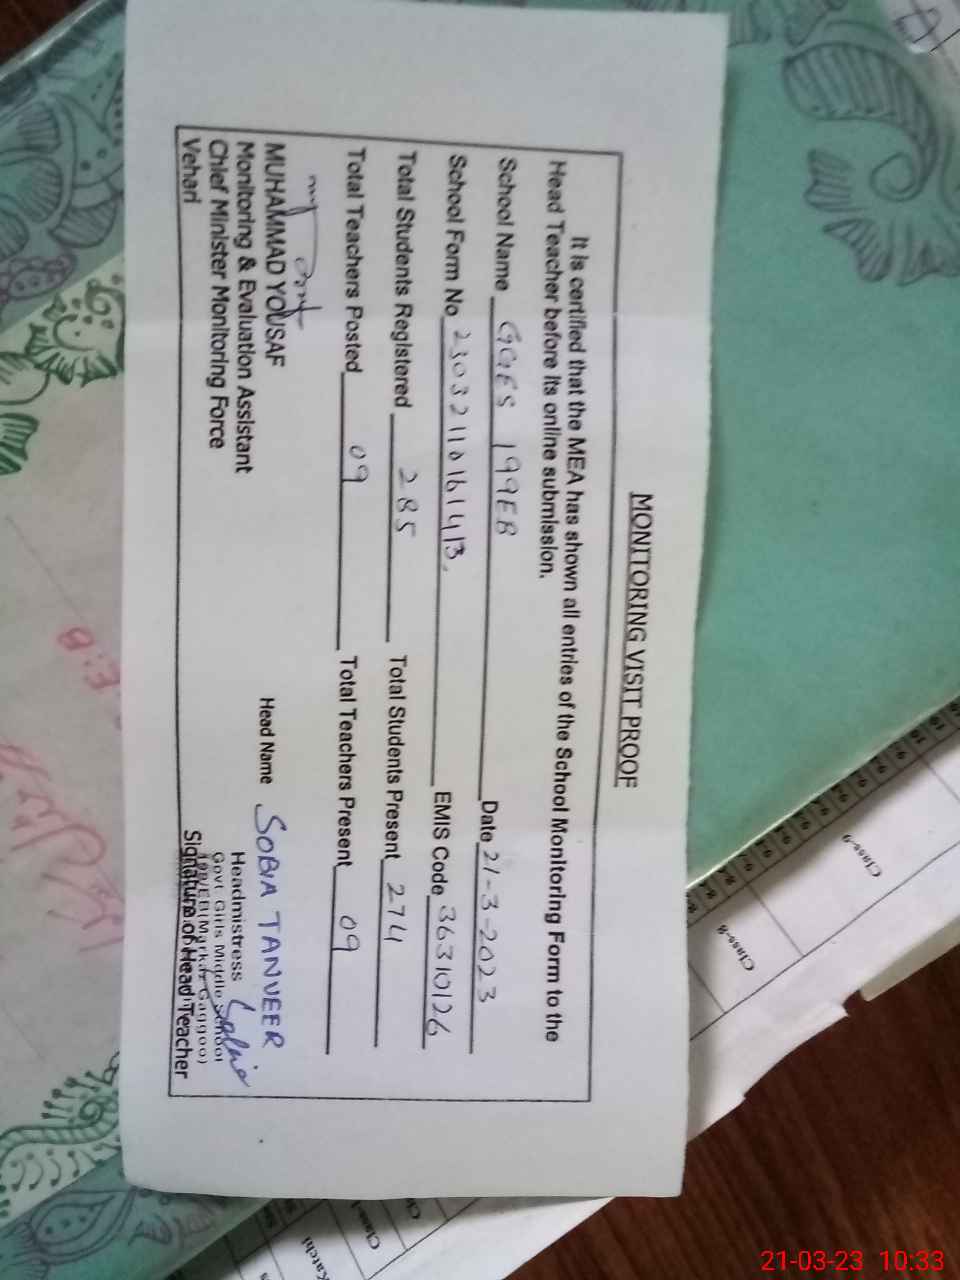 MONITORING VISIT PROOF
It is certified that the MEA has shown all entries of the School Monitoring Form to the
Head Teacher before its online submission.
School Name GGES 199EB Date 21-3-2023
School Form No 23032110161413 EMIS Code 36310126
Total Students Registered 285 Total Students Present 274
Total Teachers Posted 09 Total Teachers Present 09
MUHAMMAD YOUSAF
Monitoring & Evaluation Assistant
Chief Minister Monitoring Force
Vehari
Head Name SOBIA TANVEER
Headmistress
Govt Girls Middle School
199/EB(Markaz Gaggoo)
Signature of Head Teacher
Class-9
Class-8
Katchi
21-03-23 10:33